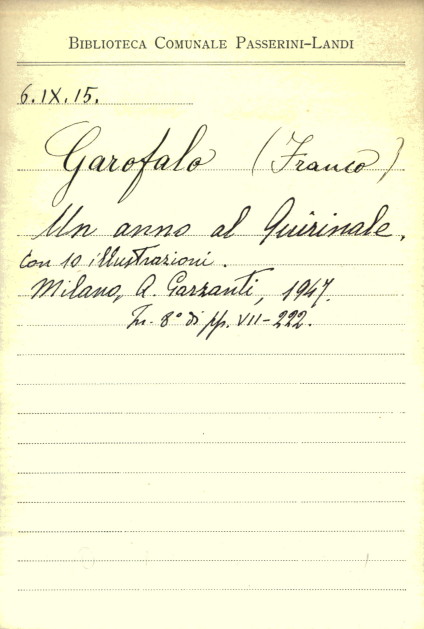 BIBLIOTECA COMUNALE PASSERINI-LANDI
6.IX.15.
Garofalo (Franco)
Un anno al Quirinale.
con 10 illustrazioni.
Milano, A. Garzanti, 1947.
In-8° di pp. VII-222.